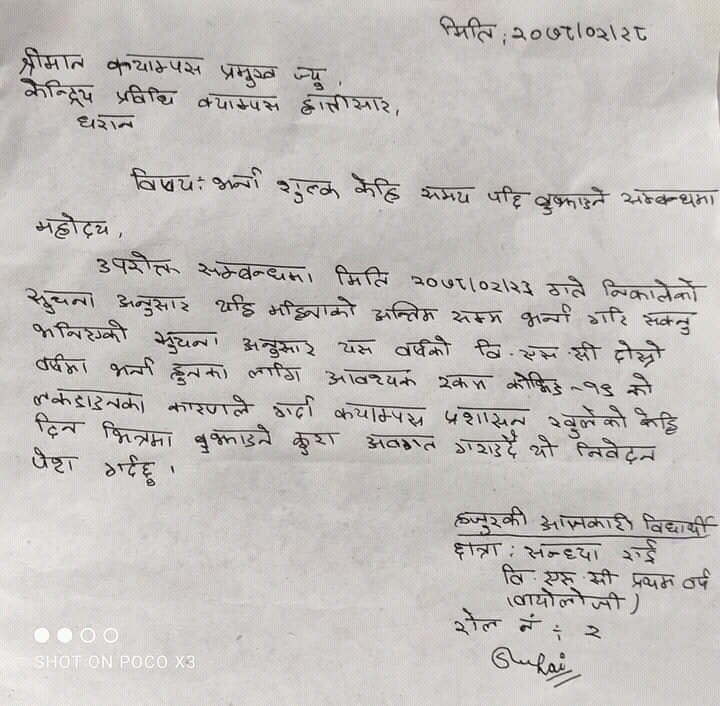 मिति : २०७८/०२/२८
श्रीमान क्याम्पस प्रमुख ज्यु,
केन्द्रिय प्रविधि क्याम्पस हात्तीसार,
धरान
विषय: भर्ना शुल्क केहि समय पछि बुझाउने सम्बन्धमा
महोदय,
उपरोक्त सम्बन्धमा मिति २०७८/०२/२३ गते निकालेको
सुचना अनुसार यहि महिनाको अन्तिम सम्म भर्ना गरि सक्नु
भनिएको सुचना अनुसार यस वर्षको वि.एस.सी दोस्रो
वर्षमा भर्ना हुनका लागि आवश्यक रकम कोभिड-१९ को
लकडाउनका कारणले गर्दा क्याम्पस प्रशासन खुलेको केहि
दिन भित्रमा बुझाउने कुरा अवगत गराउँदै यो निवेदन
पेश गर्दछु ।
हजुरकी आज्ञाकारी विद्यार्थी
छात्रा : सन्ध्या राई
वि.एस.सी प्रथम वर्ष
(बायोलोजी)
रोल नं : २
SHOT ON POCO X3